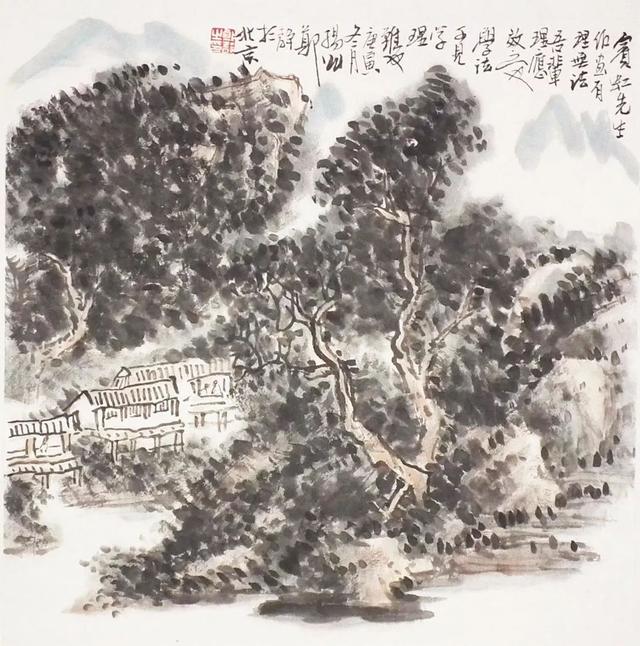 賓虹先生
作畫有
理無法
吾輩
理應
效之
學法
不見
学
理
難
庚寅
冬月
鄭
於
北京